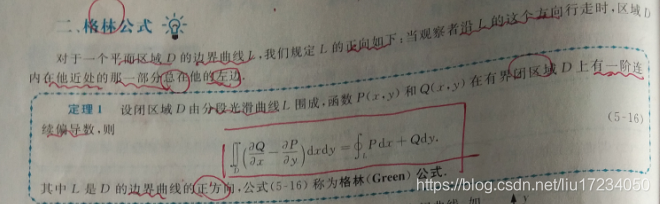 二、格林公式
对于一个平面区域 D 的边界曲线 L,我们规定 L 的正向如下:当观察者沿 L 的这个方向行走时,区域 D
内在他近处的那一部分总在他的左边.
定理1 设闭区域 D 由分段光滑曲线 L 围成,函数 P(x,y) 和 Q(x,y) 在有界闭区域 D 上有一阶连
续偏导数,则
∬_D (∂Q/∂x − ∂P/∂y) dxdy = ∮_L Pdx + Qdy, (5-16)
其中 L 是 D 的边界曲线的正方向,公式(5-16) 称为格林(Green)公式.
https://blog.csdn.net/liu17234050